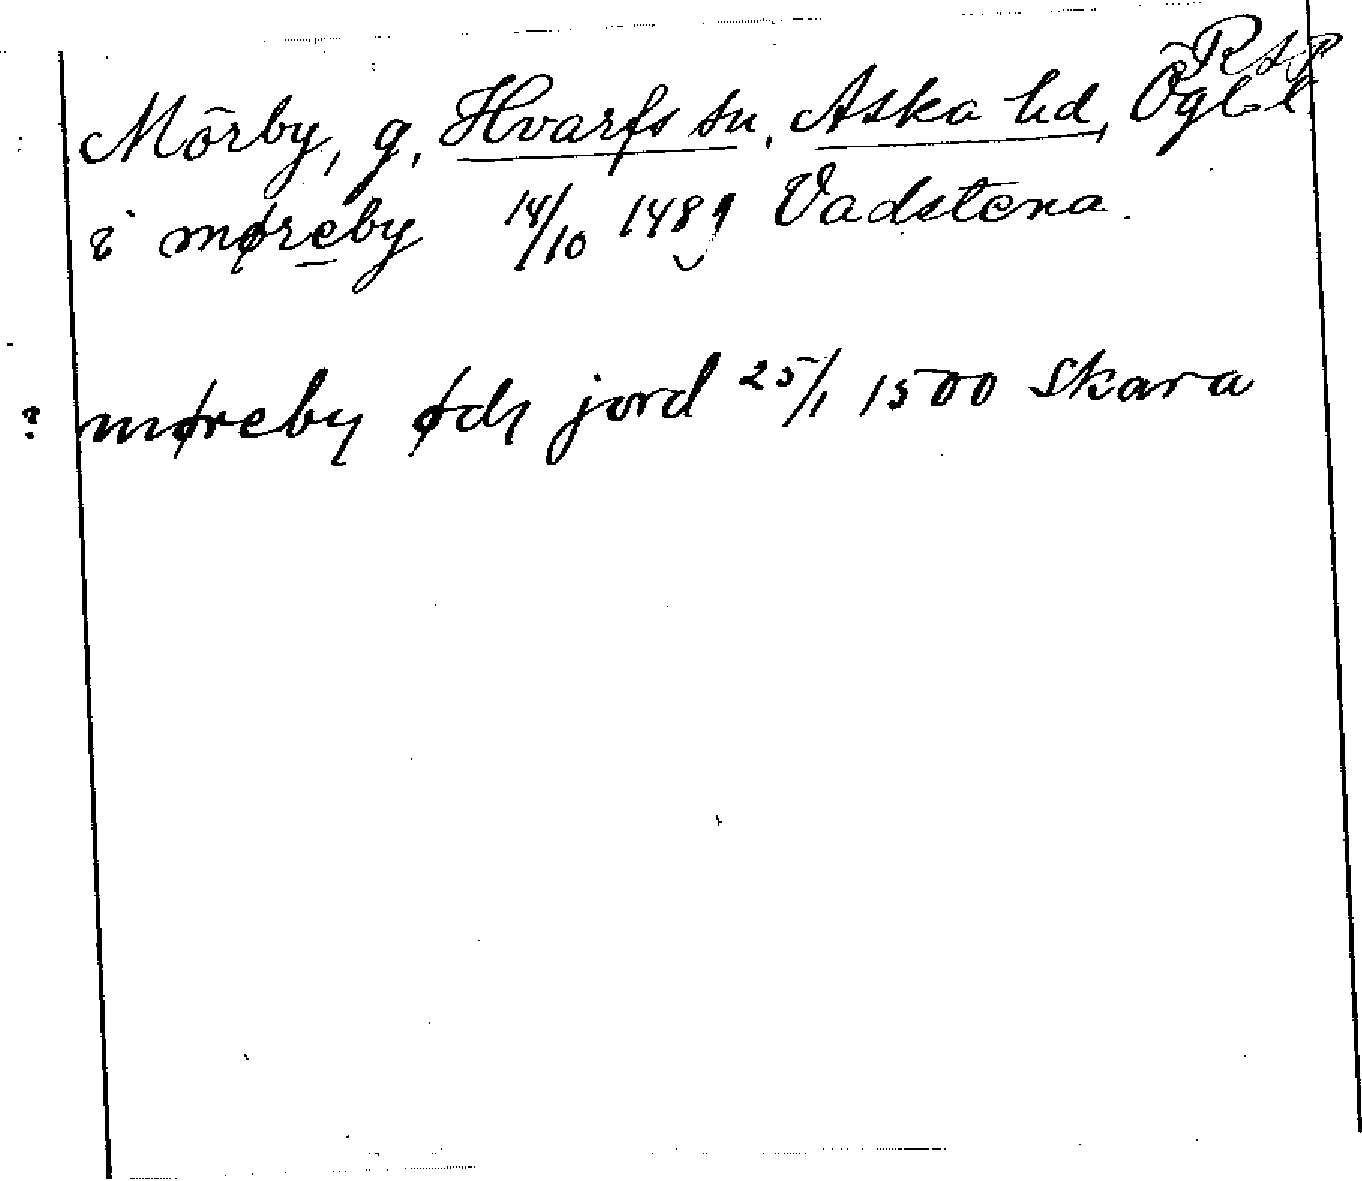 RAP
Mörby, g, Hvarfs sn, Aska hd, Ögl.
i møreby 14/10 1489 Vadstena.
? møreby ødh jord 25/1 1500 Skara